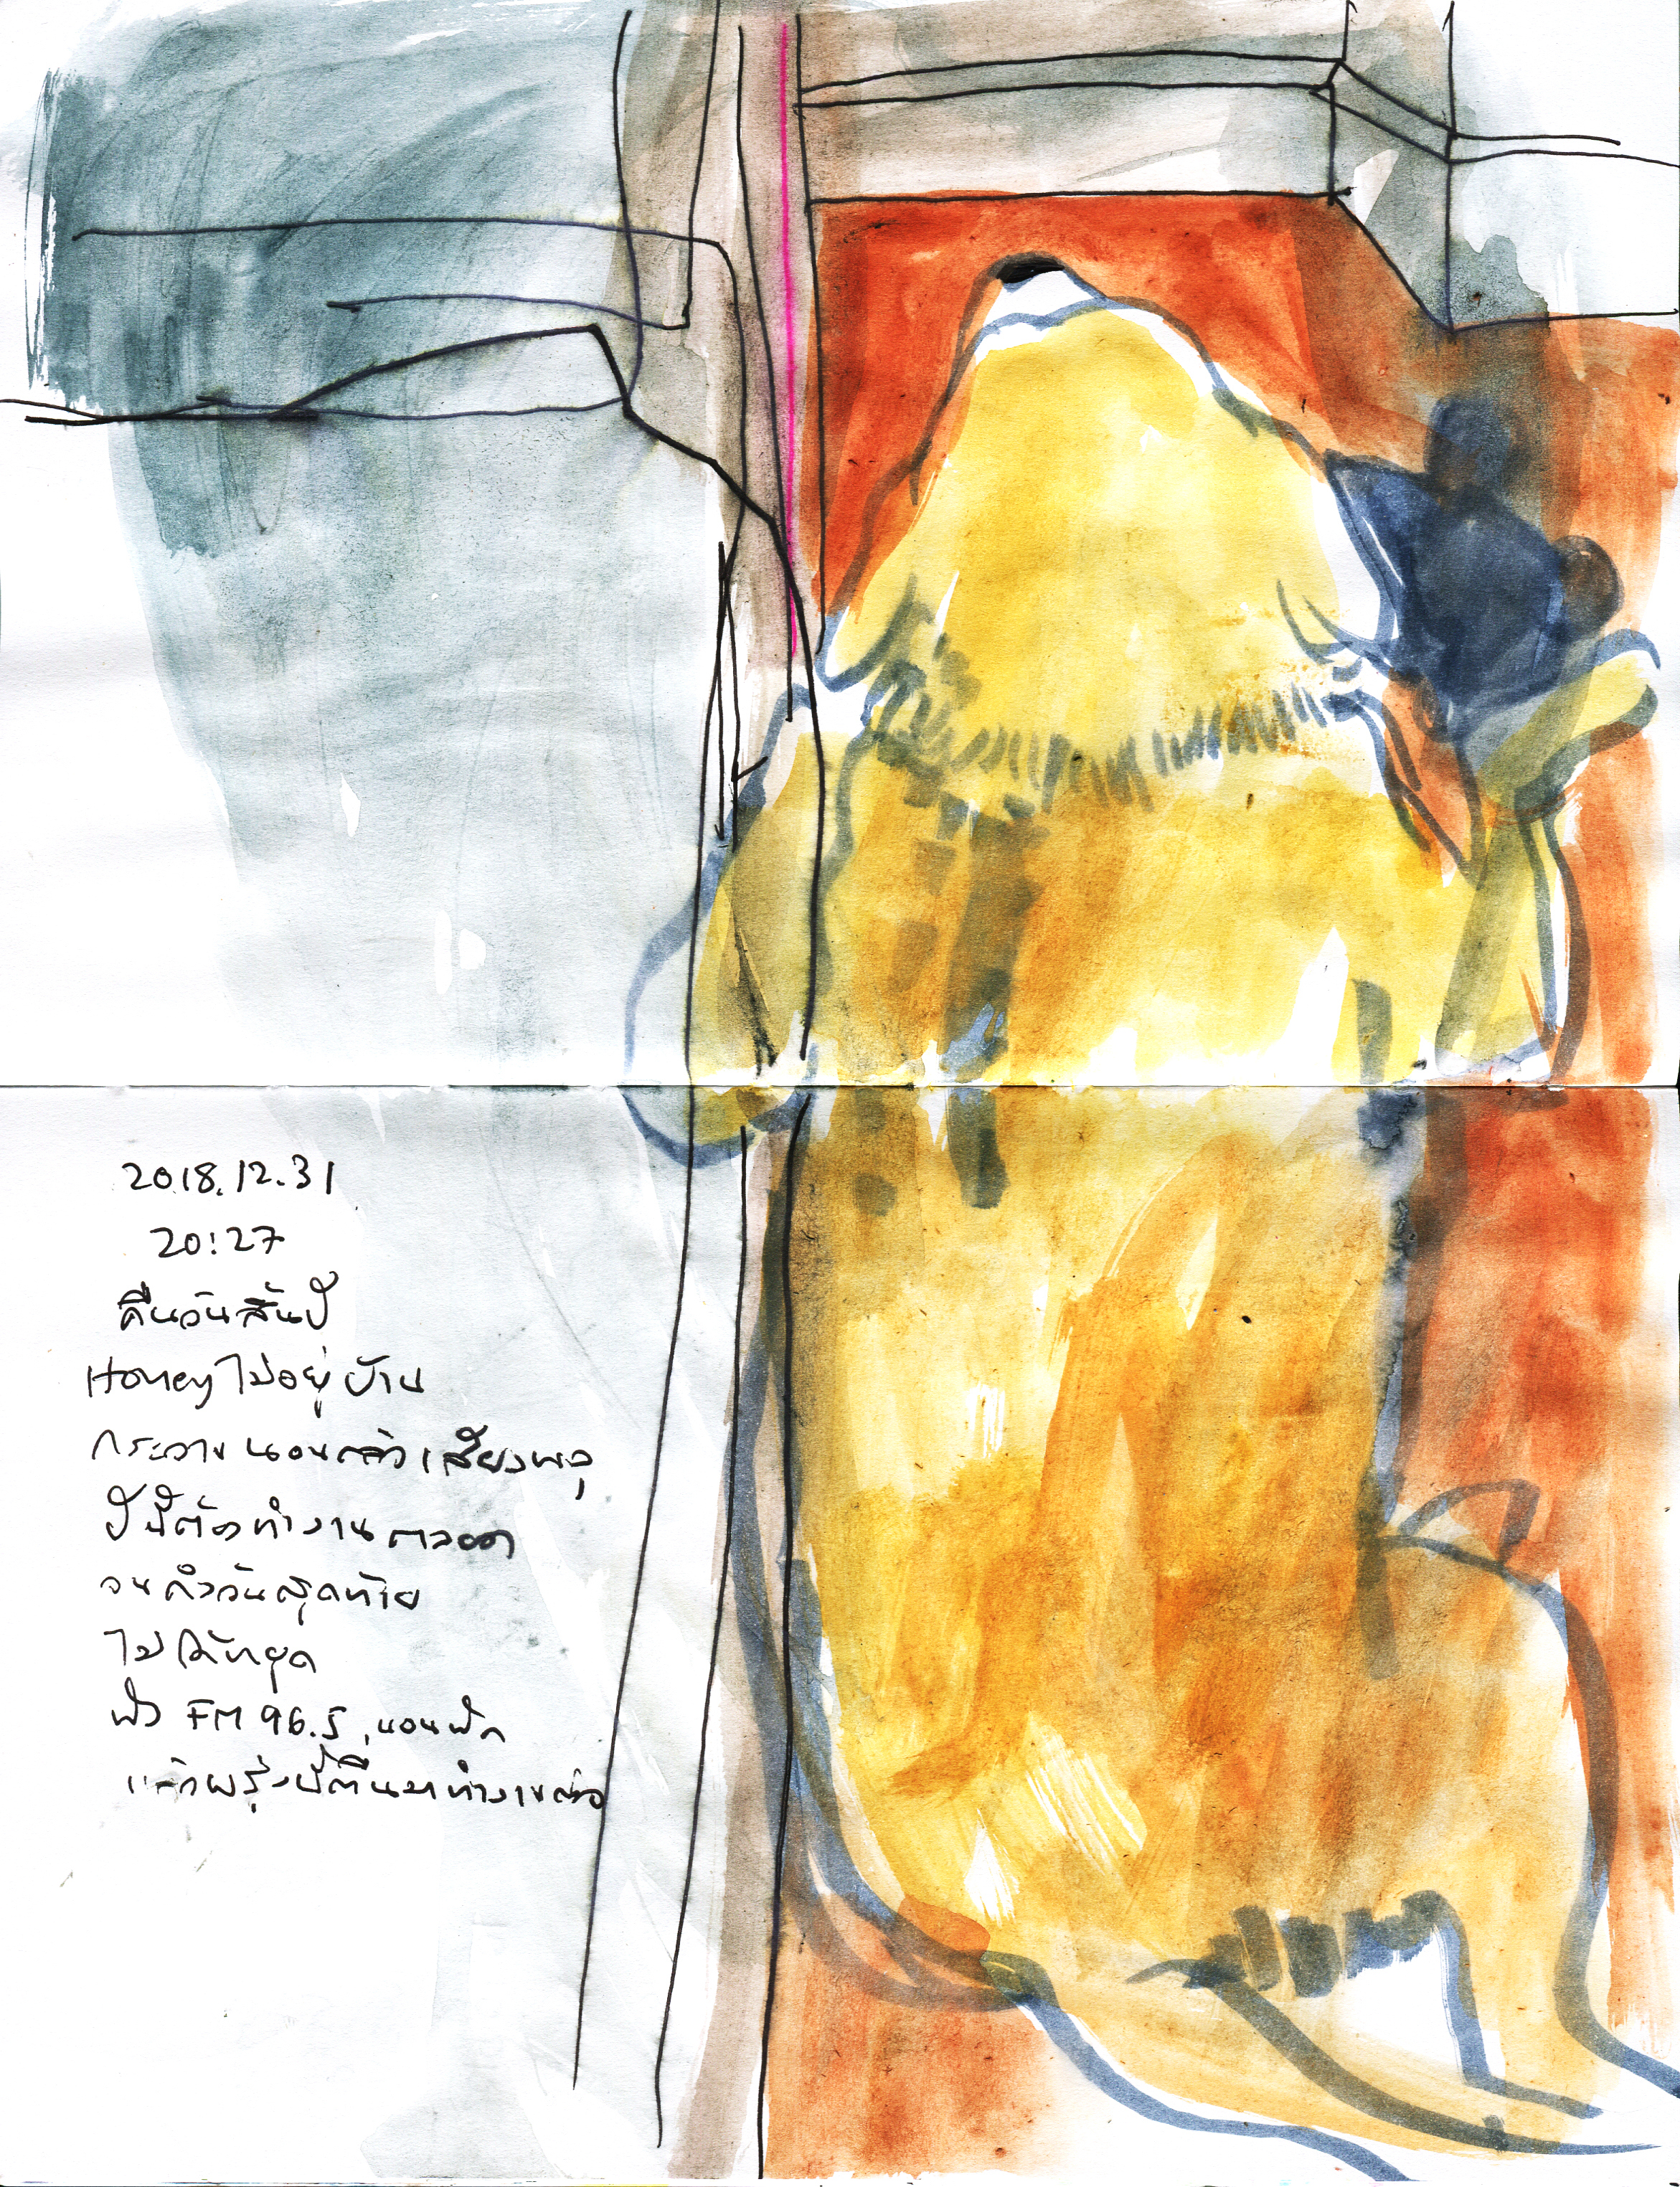 2018.12.31
20:27
คืนวันสิ้นปี
Honey ไม่อยู่บ้าน
กระวาน นอนกลัวเสียงพลุ
ปีนี้ต้องทำงานตลอด
จนถึงวันสุดท้าย
ไม่ได้หยุด
ฟัง FM 96.5 นอนพัก
แล้วพรุ่งนี้ตื่นมาทำงานต่อ